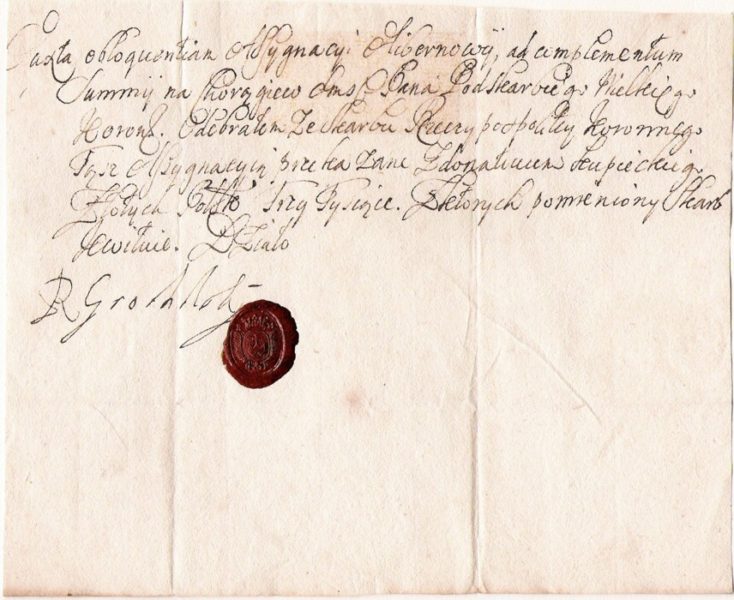 Juxta obloquentiam Assygnacyi Hibernowy, ad complementum
Summy na Chorągiew Jmsc Pana Podskarbie˚go Wielkie˚go
Koron. Odebrałem Ze Skarbu Rzeczypospolitey koronne˚go
Assygnacyą Zdonativum kupieckie˚go
Złotych Polsk Trzy Tysiące. Zktorych pomieniony Skarb
kwituie. Działo